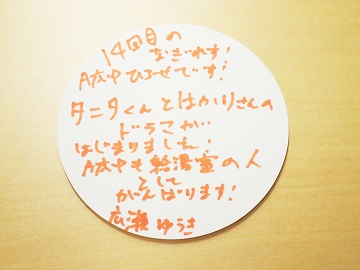 14回目の
A応Pひろせです!
タニタくんとはかりさんの
ドラマが
はじまりました!
A応Pも給湯室の人
として
がんばります!
広瀬ゆうき